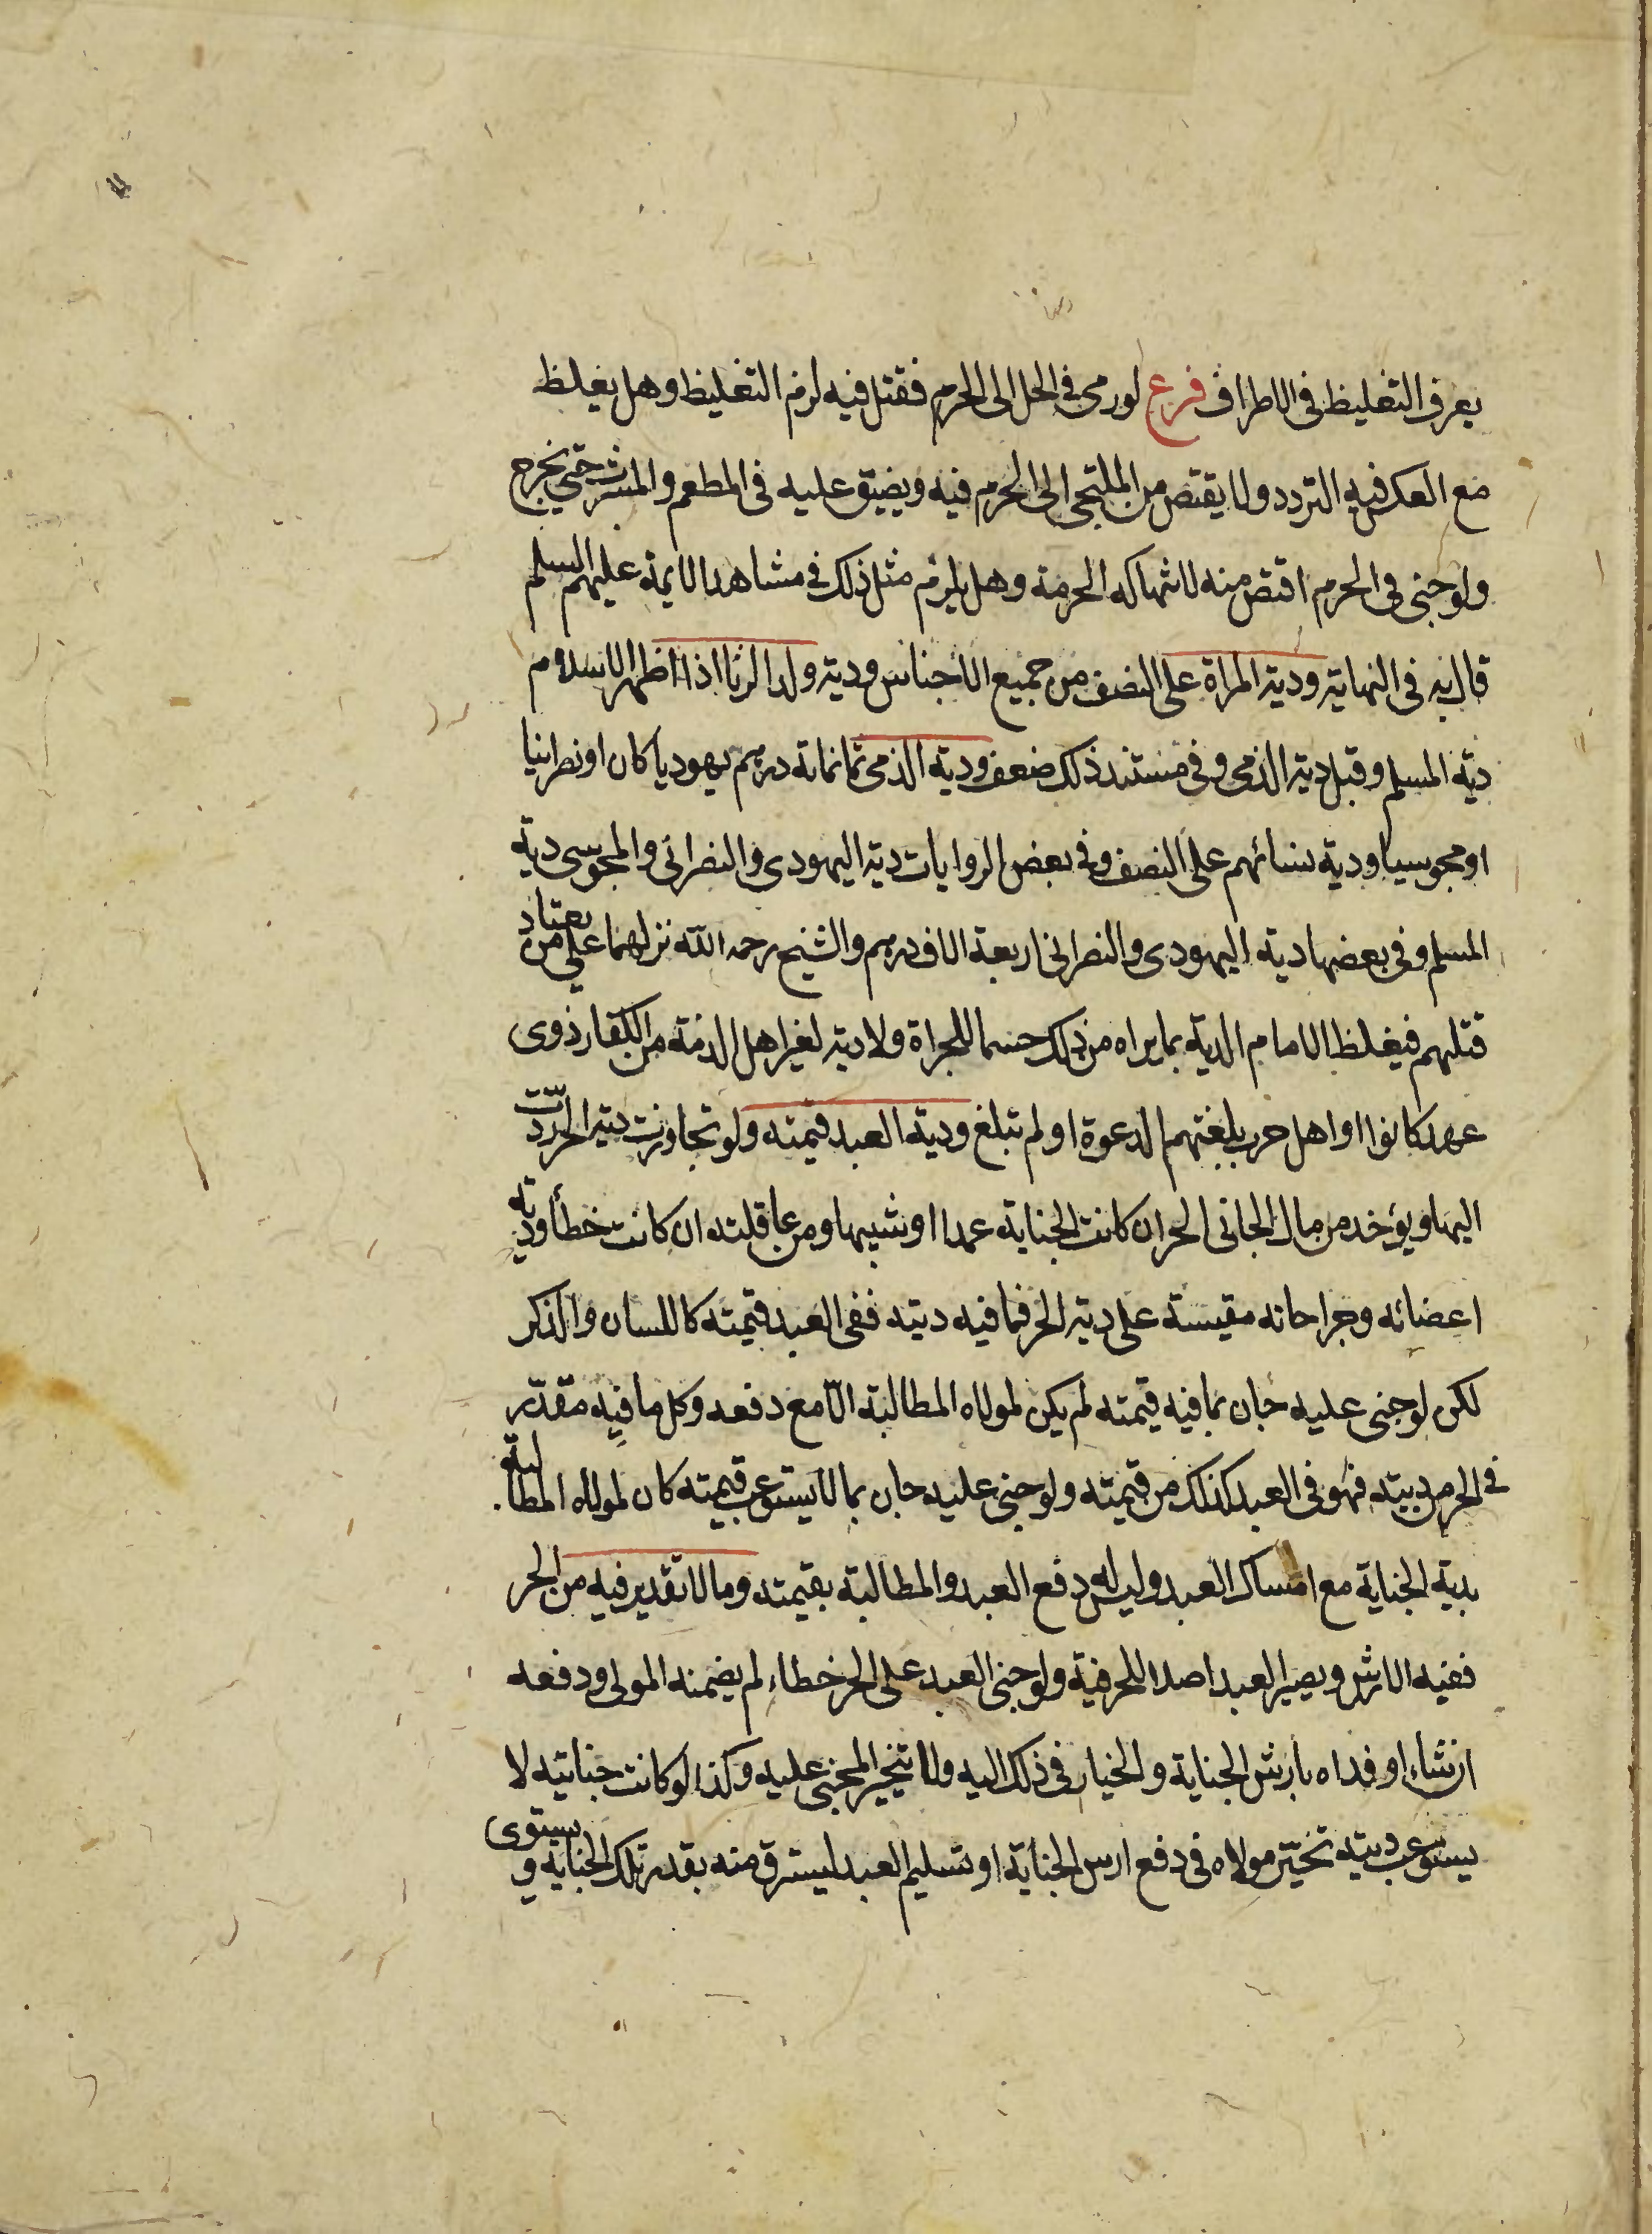 يعرف التغليظ في الاطراف فرع لو رمى في الحل الى الحرم فقتل فيه لزم التغليظ وهل يغلظ
مع العكس فيه التردد ولا يقتص من الملتجى الى الحرم فيه ويضيق عليه في المطعم والمشرب حتى يخرج
ولو جنى في الحرم اقتص منه لانتهاكه الحرمة وهل يلزم مثل ذلك في مشاهد الايمة عليهم السلم
قال به في النهاية ودية المراة على النصف من جميع الاجناس ودية ولد الزنا اذا اظهر الاسلام
دية المسلم وقيل دية الذمى وفي مستند ذلك ضعف ودية الذمى ثمانماية درهم يهوديا كان او نصرانيا
او مجوسيا ودية نسائهم على النصف وفي بعض الروايات دية اليهودى والنصرانى والمجوسى دية
المسلم وفي بعضها دية اليهودى والنصرانى اربعة الاف درهم والشيخ رحمه الله نزلهما على من يعتاد
قتلهم فيغلظ الامام الدية بما يراه من ذلك حسما للجراة ولا دية لغير اهل الذمة من الكفار ذوى
عهد كانوا او اهل حرب بلغتهم الدعوة او لم تبلغ ودية العبد قيمته ولو تجاوزت دية الحر ردّت
اليها ويؤخذ من مال الجانى الحر ان كانت الجناية عمدا او شبيها ومن عاقلته ان كانت خطأ ودية
اعضائه وجراحاته مقيسة على دية الحر فما فيه ديته ففى العبد قيمته كاللسان والذكر
لكن لو جنى عليه جان بما فيه قيمته لم يكن لمولاه المطالبة الّا مع دفعه وكل ما فيه مقدّر
في الحر من ديته فهو في العبد كذلك من قيمته ولو جنى عليه جان بما لا يستوعب قيمته كان لمولاه المطالبة
بدية الجناية مع امساك العبد وليس له دفع العبد والمطالبة بقيمته وما لا تقدير فيه من الحر
ففيه الارش ويصير العبد اصلا للحر فيه ولو جنى العبد على الحر خطاء لم يضمنه المولى ودفعه
ان شاء او فداه بارش الجناية والخيار في ذلك اليه ولا يتخير المجنى عليه وكذا لو كانت جنايته لا
يستوعب ديته تخيّر مولاه في دفع ارش الجناية او تسليم العبد ليسترق منه بقدر تلك الجناية ويستوى